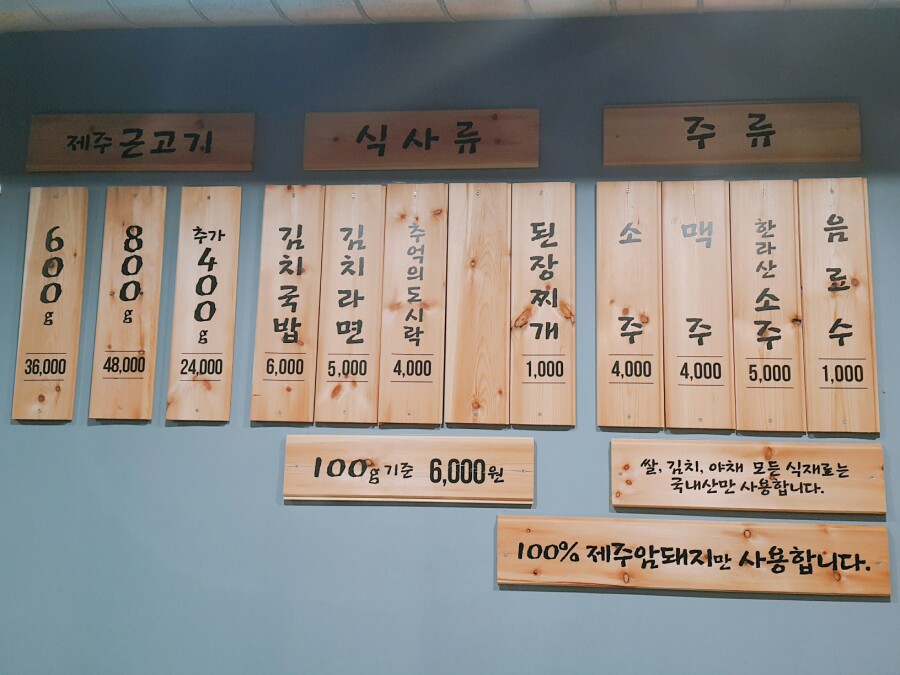 제주 근고기
식사류
주류
600g
36,000
800g
48,000
추가 400g
24,000
김치국밥
6,000
김치라면
5,000
추억의도시락
4,000
된장찌개
1,000
소주
4,000
맥주
4,000
한라산 소주
5,000
음료수
1,000
100g 기준 6,000원
쌀, 김치, 야채 모든 식재료는
국내산만 사용합니다.
100% 제주암돼지만 사용합니다.